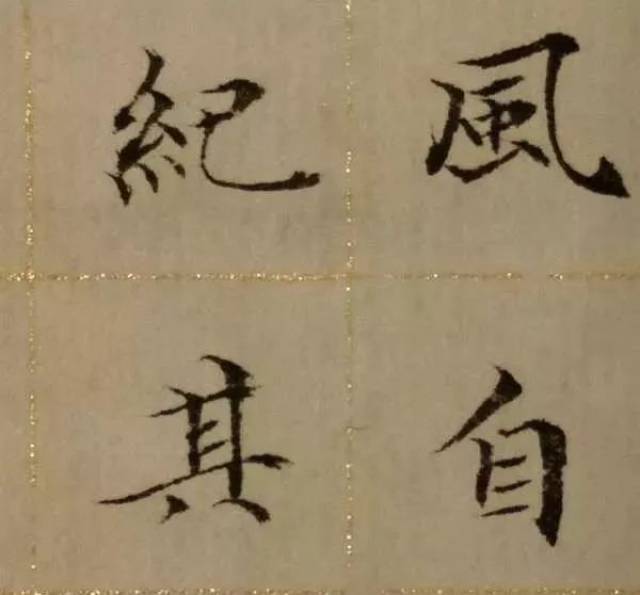 風自
紀其